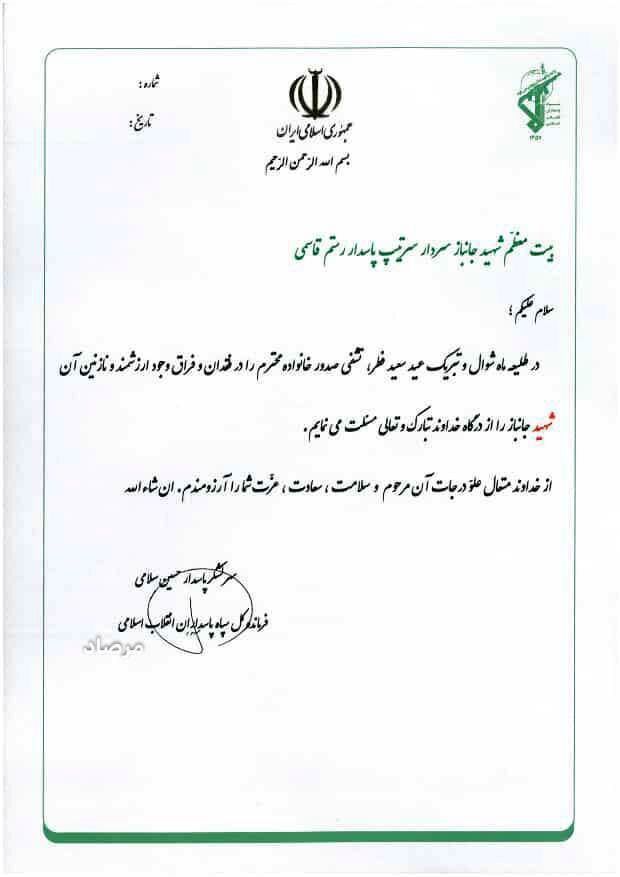 شماره :
تاریخ :
جمهوری اسلامی ایران
بسم الله الرحمن الرحیم
بیت معظّم شهید جانباز سردار سرتیپ پاسدار رستم قاسمی
سلام علیکم ؛
در طلیعه ماه شوال و تبریک عید سعید فطر، تشفی صدور خانواده محترم را در فقدان و فراق وجود ارزشمند و نازنین آن
شهید جانباز را از درگاه خداوند تبارک و تعالی مسئلت می نمایم .
از خداوند متعال علوّ درجات آن مرحوم و سلامت ، سعادت ، عزّت شما را آرزومندم . ان شاء الله
سرلشکر پاسدار حسین سلامی
فرمانده کل سپاه پاسداران انقلاب اسلامی
مرصاد